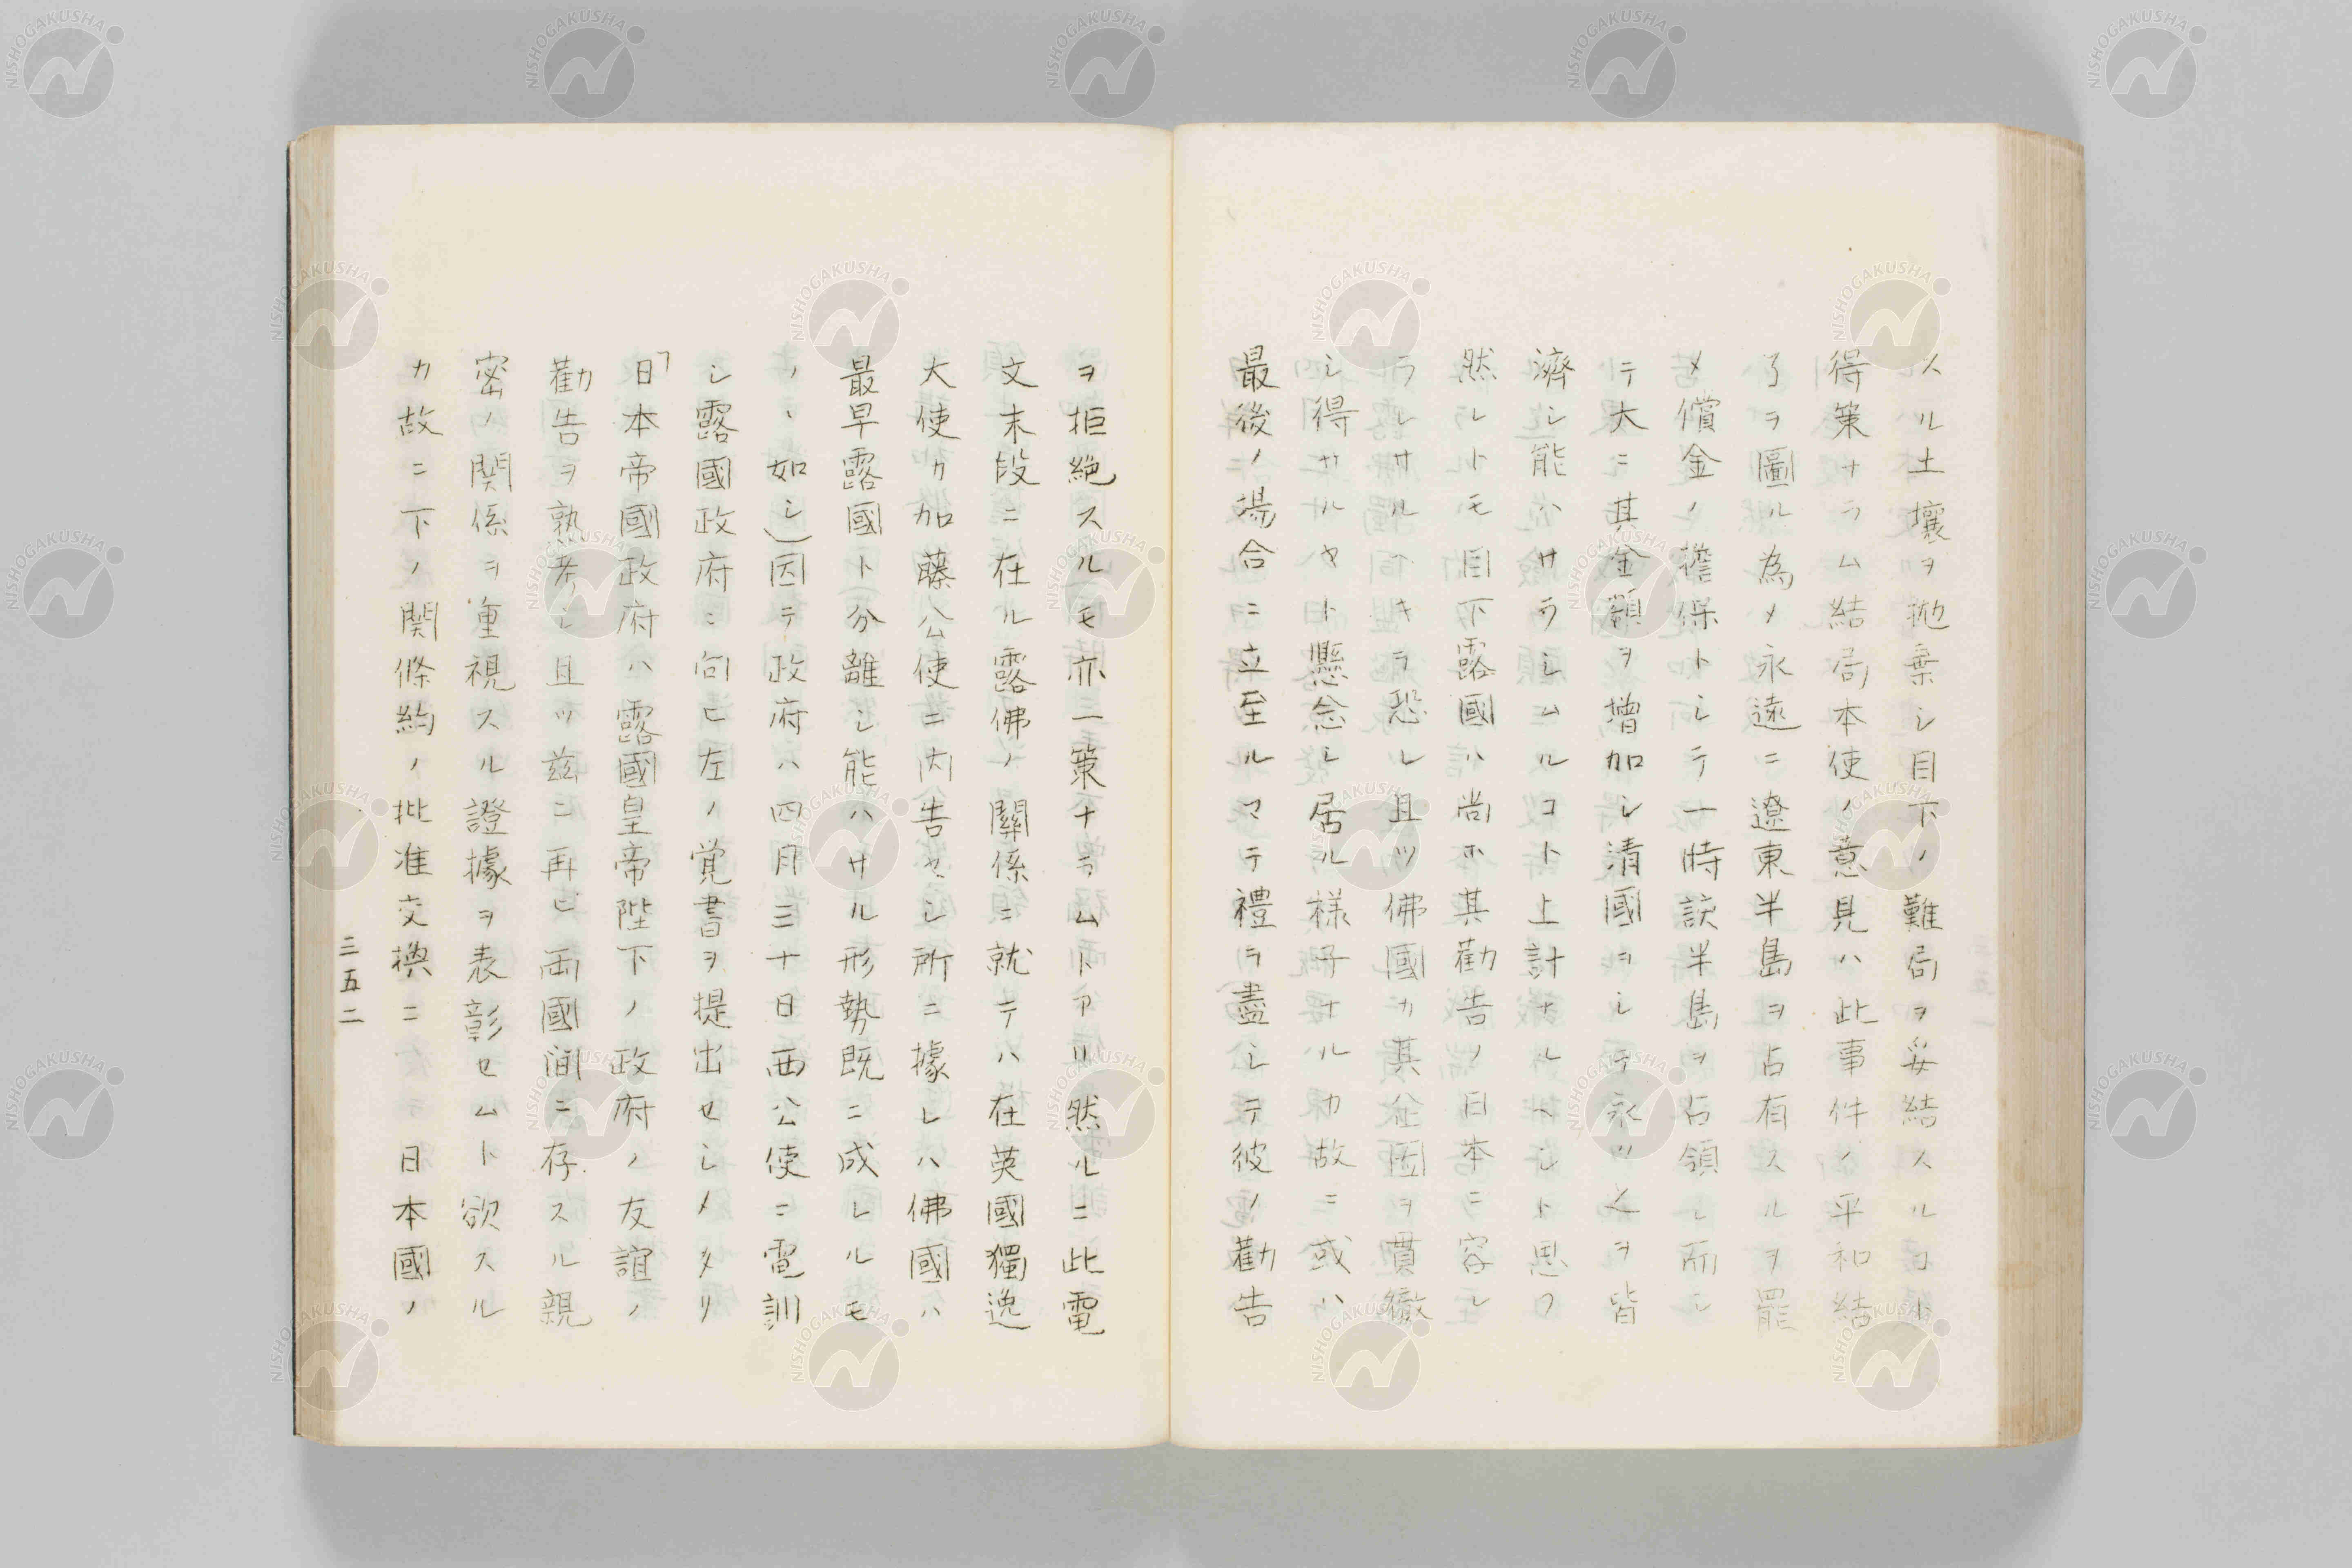 スル土壤ヲ抛棄シ目下ノ難局ヲ妥結スルコト
得策ナラム結局本使ノ意見ハ此事件ノ平和結
了ヲ圖ル為メ永遠ニ遼東半島ヲ占有スルヲ罷
メ償金ノ擔保トシテ一時該半島ヲ占領シ而シ
テ大ニ其金額ヲ增加シ清國ヲシテ永ク之ヲ皆
濟シ能ハサラシムルコト上計ナルヘシト思フ
然レトモ目下露國ハ尚ホ其勸告ノ日本ニ容レ
ラレサルヿキラ恐レ且ツ佛國カ其企圖ヲ貫徹
シ得サルヤト懸念シ居ル様子ナルカ故ニ或ハ
最後ノ場合ニ立至ルマテ禮ヲ盡シテ彼ノ勸告
ヲ拒絶スルモ亦一策ナラムトアリ然ルニ此電
文末段ニ在ル露佛ノ關係ニ就テハ在英國獨逸
大使カ加藤公使ニ内告セシ所ニ據レハ佛國ハ
最早露國ト分離シ能ハサル形勢既ニ成レルモ
ノヽ如シ)因テ政府ハ四月三十日西公使ニ電訓
シ露國政府ニ向ヒ左ノ覚書ヲ提出セシメタリ
「日本帝國政府ハ露國皇帝陛下ノ政府ノ友誼ノ
勸告ヲ熟考シ且ツ茲ニ再ヒ両國間ニ存スル親
密ノ関係ヲ重視スル證據ヲ表彰セムト欲スル
カ故ニ下ノ関條約ノ批准交換ニ 日本國ノ
三五二
NISHOGAKUSHA